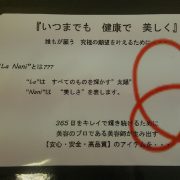 『いつまでも 健康で 美しく』
誰もが願う 究極の願望を叶えるために
"La Nani"とは???
"La"は すべてのものを輝かす"太陽"
"Nani"は "美しさ"を表します。
365日をキレイで輝き続けるために
美容のプロである美容師が生み出す
【安心・安全・高品質】のアイテムを・・